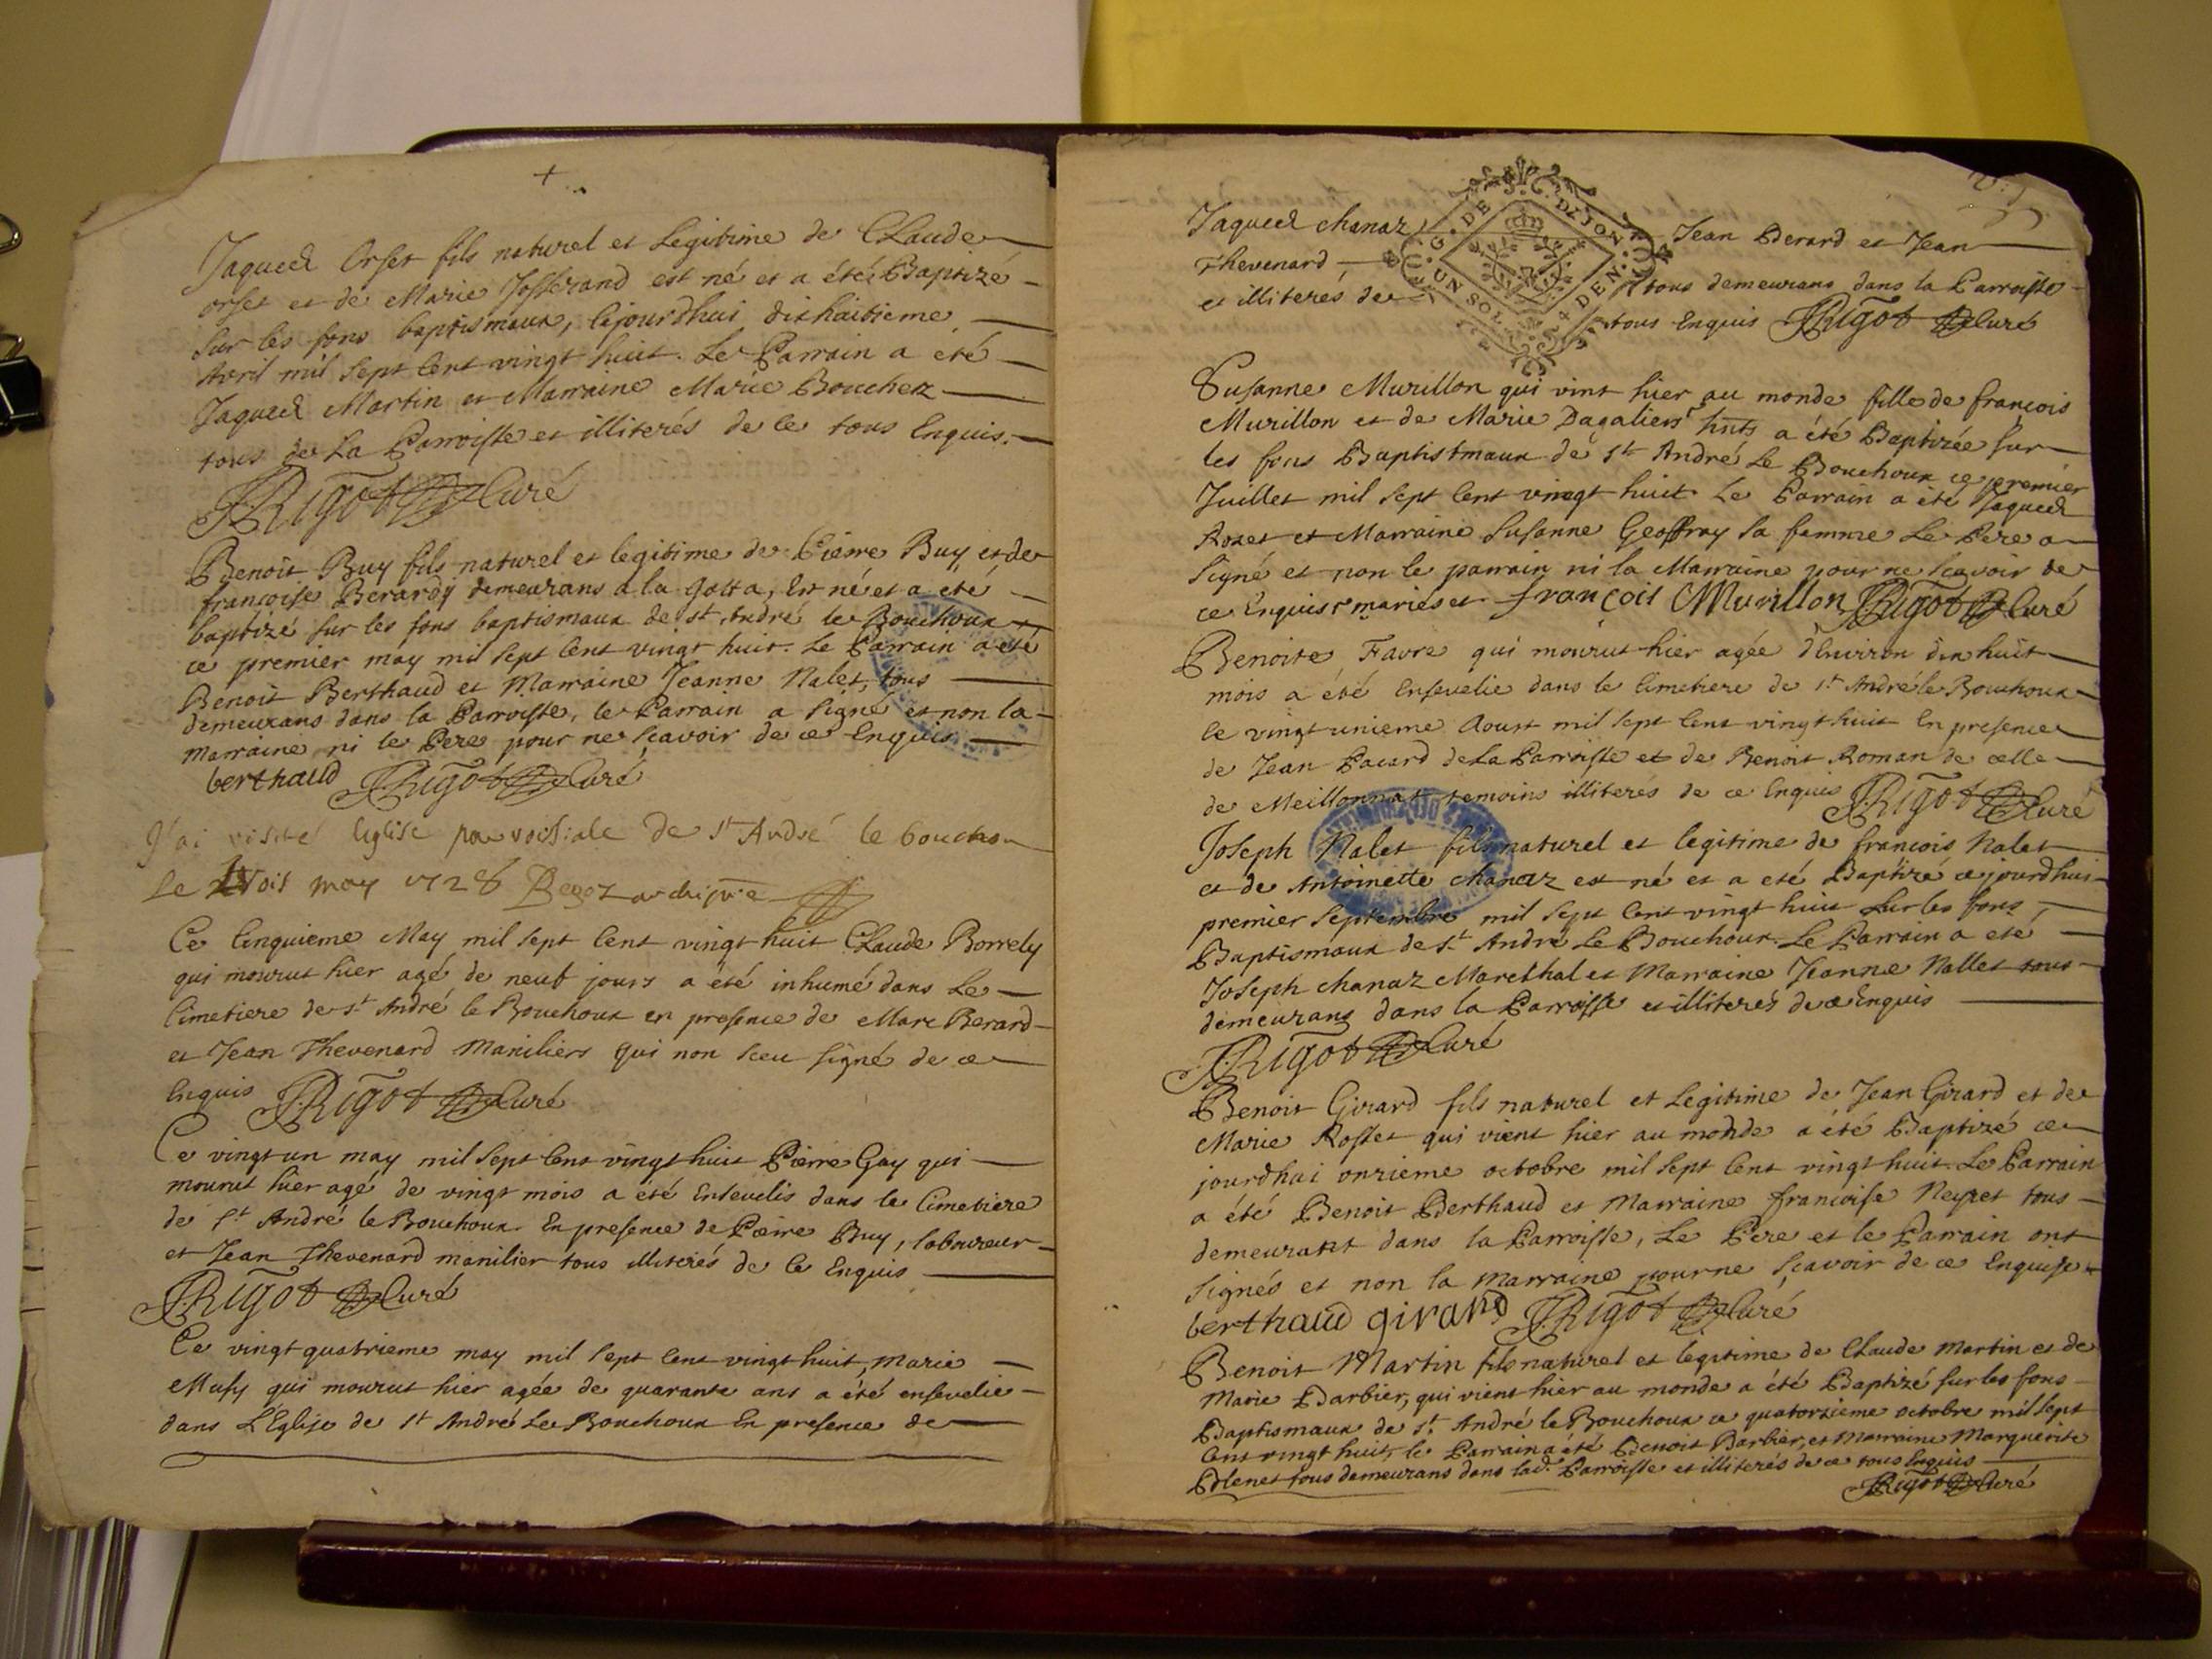 +
Jaques Orset fils naturel et Legitime de Claude
orset et de Marie Josserand est né et a été Baptizé
sur les fons baptismaux, cejourdhui dixhuitieme
Avril mil sept cent vingt huit. Le Parrain a eté
Jaques Martin et Marraine Marie Boucher
tous de La Parroisse et illiterés de ce tous Enquis.
Rigot Curé
Benoit Buy fils naturel et legitime de Pierre Buy et de
françoise Berardy demeurans a la gotta, Est né et a eté
baptizé sur les fons baptismaux de st André le Bouchoux
ce premier may mil sept cent vingt huit. Le Parrain a eté
Benoit Berthaud et Marraine Jeanne Nalet, tous
demeurans dans la Parroisse, le Parrain a signé et non la
Marraine ni le Pere pour ne sçavoir de ce Enquis
berthaud Rigot Curé
J'ai visité leglise parrochiale de st André le bouchou
Le trois may 1728
Ce Cinquieme May mil sept cent vingt huit Claude Borrely
qui mourut hier agé de neuf jours a été inhumé dans Le
Cimetiere de st André le Bouchoux en presence de Marc Berard
et Jean Thevenard Maniliers qui non sceu signé de ce
Enquis Rigot Curé
Ce vingt un may mil sept cent vingt huit Pierre Gay qui
mourut hier agé de vingt mois a été Ensevelis dans le Cimetiere
de st André le Bouchoux. En presence de Pierre Buy, laboureur
et Jean Thevenard manilier tous illiterés de ce Enquis
Rigot Curé
Ce vingt quatrieme may mil sept cent vingt huit, Marie
Musy qui mourut hier agée de quarante ans a été ensevelie
dans L'Eglise de st André Le Bouchoux En presence de
Jaques chanaz Jean Berard et Jean
Thevenard, tous demeurans dans la Parroisse
et illiterés de tous Enquis Rigot Curé
G. DE DIJON
UN SOL 4 DEN.
Susanne Murillon qui vint hier au monde fille de françois
Murillon et de Marie Dagaliers a été Baptizée sur
les fons Baptistmaux de st André Le Bouchoux ce premier
Juillet mil sept cent vingt huit. Le Parrain a été Jaques
Rozet et Marraine Susanne Geoffray sa femme Le Pere a
signé et non le parrain ni la Marraine pour ne sçavoir de
ce Enquis mariés et françois Murillon Rigot Curé
Benoite Favre qui mourut hier agée d'Environ dix huit
mois a été Ensevelie dans le Cimetiere de st André le Bouchoux
le vingt unieme Aoust mil sept cent vingt huit En presence
de Jean Pacard de La Parroisse et de Benoit Roman de celle
de Meillonnat temoins illiterés de ce Enquis Rigot Curé
Joseph Nalet fils naturel et legitime de françois Nalet
et de Antoinette chanaz est né et a eté Baptizé cejourdhui
premier septembre mil sept cent vingt huit sur les fons
Baptismaux de st André Le Bouchoux. Le Parrain a eté
Joseph chanaz Marechal et Marraine Jeanne Nallet tous
demeurans dans la Parroisse et illiterés de ce Enquis
Rigot Curé
Benoit Girard fils naturel et Legitime de Jean Girard et de
Marie Rosset qui vient hier au monde a été Baptizé ce
jourdhui onzieme octobre mil sept cent vingt huit. Le Parrain
a été Benoit Berthaud et Marraine françoise Neyret tous
demeurant dans la Parroisse, Le Pere et le Parrain ont
signés et non la Marraine pour ne sçavoir de ce Enquise
berthaud girard Rigot Curé
Benoit Martin fils naturel et legitime de Claude Martin et de
Marie Barbier, qui vient hier au monde a été Baptizé sur les fons
Baptismaux de st. André le Bouchoux ce quatorzieme octobre mil sept
Cent vingt huit, le Parrain a été Benoit Barbier, et Marraine Marguerite
tous demeurans dans lad. Parroisse et illiterés de ce tous Enquis
Rigot Curé